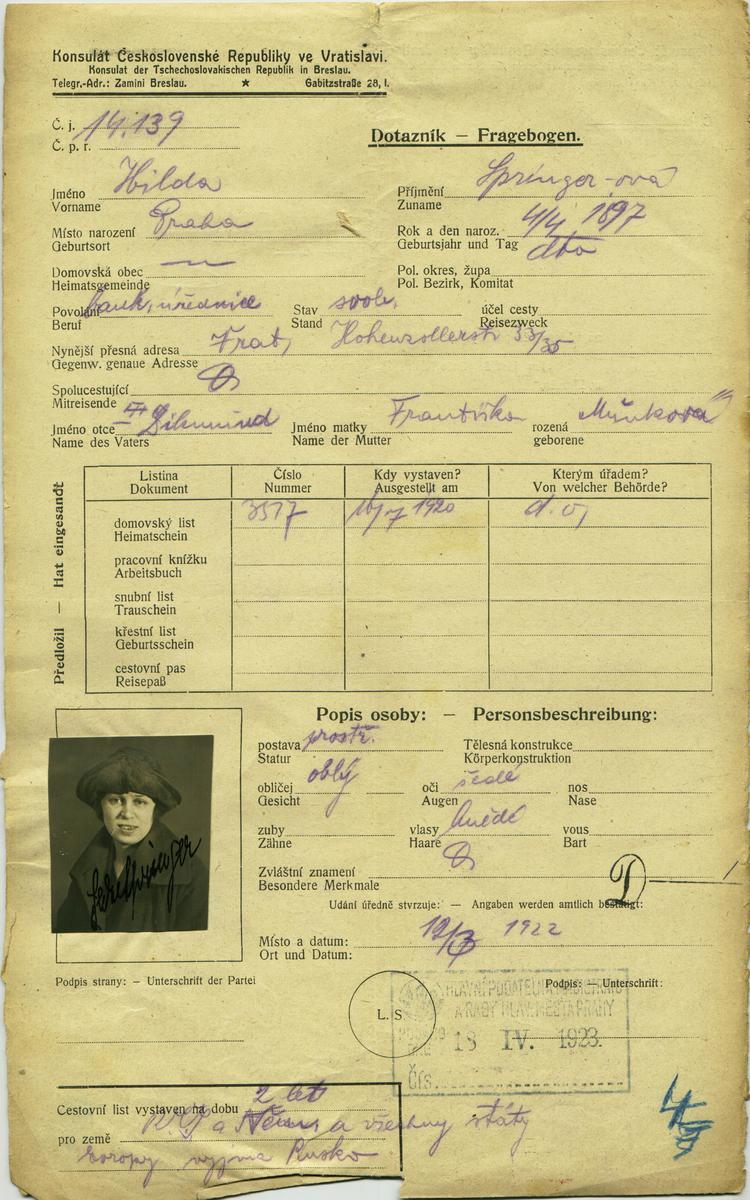 Konsulát Československé Republiky ve Vratislavi.
Konsulat der Tschechoslovakischen Republik in Breslau.
Telegr.-Adr.: Zamini Breslau. ★ Gabitzstraße 28, I.
Č. j. 14.139
Č. p. r.
Dotazník – Fragebogen.
Jméno Hilda Příjmení Springer-ová
Vorname Zuname
Místo narození Praha Rok a den naroz. 4/4 1897
Geburtsort Geburtsjahr und Tag
Domovská obec Pol. okres, župa dto
Heimatsgemeinde Pol. Bezirk, Komitat
Povolání bank. úřednice Stav svob. účel cesty
Beruf Stand Reisezweck
Nynější přesná adresa Vrat, Hohenzollerstr 33/35
Gegenw. genaue Adresse
Spolucestující
Mitreisende
Jméno otce Jméno matky Františka rozená Munková
Name des Vaters Name der Mutter geborene
Předložil — Hat eingesandt
Listina Číslo Kdy vystaven? Kterým úřadem?
Dokument Nummer Ausgestellt am Von welcher Behörde?
domovský list 3517 1920
Heimatschein
pracovní knížku
Arbeitsbuch
snubní list
Trauschein
křestní list
Geburtsschein
cestovní pas
Reisepaß
Popis osoby: — Personsbeschreibung:
postava prostř. Tělesná konstrukce
Statur Körperkonstruktion
obličej oblý oči šedé nos
Gesicht Augen Nase
zuby vlasy hnědé vous
Zähne Haare Bart
Zvláštní znamení
Besondere Merkmale
D
Údání úředně stvrzuje: — Angaben werden amtlich bestätigt:
Místo a datum: 1922
Ort und Datum:
Podpis strany: – Unterschrift der Partei
Podpis: — Unterschrift:
L. S.
18 IV. 1923
Čís.
Cestovní list vystaven na dobu 2 let
pro země a všechny státy
Evropy vyjma Rusko